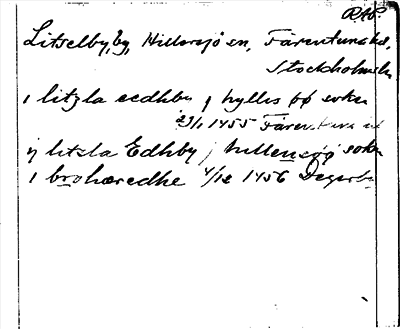 RAP.
Litselby, by, Hillersjö sn, Färentuna hd,
Stockholms län
i litzla eedhby j hyllis øø sokn
23/1 1455 Färentuna
ij litsla Edhby j hillensøø sokn
i brohæredhe 4/12 1456 Degerby